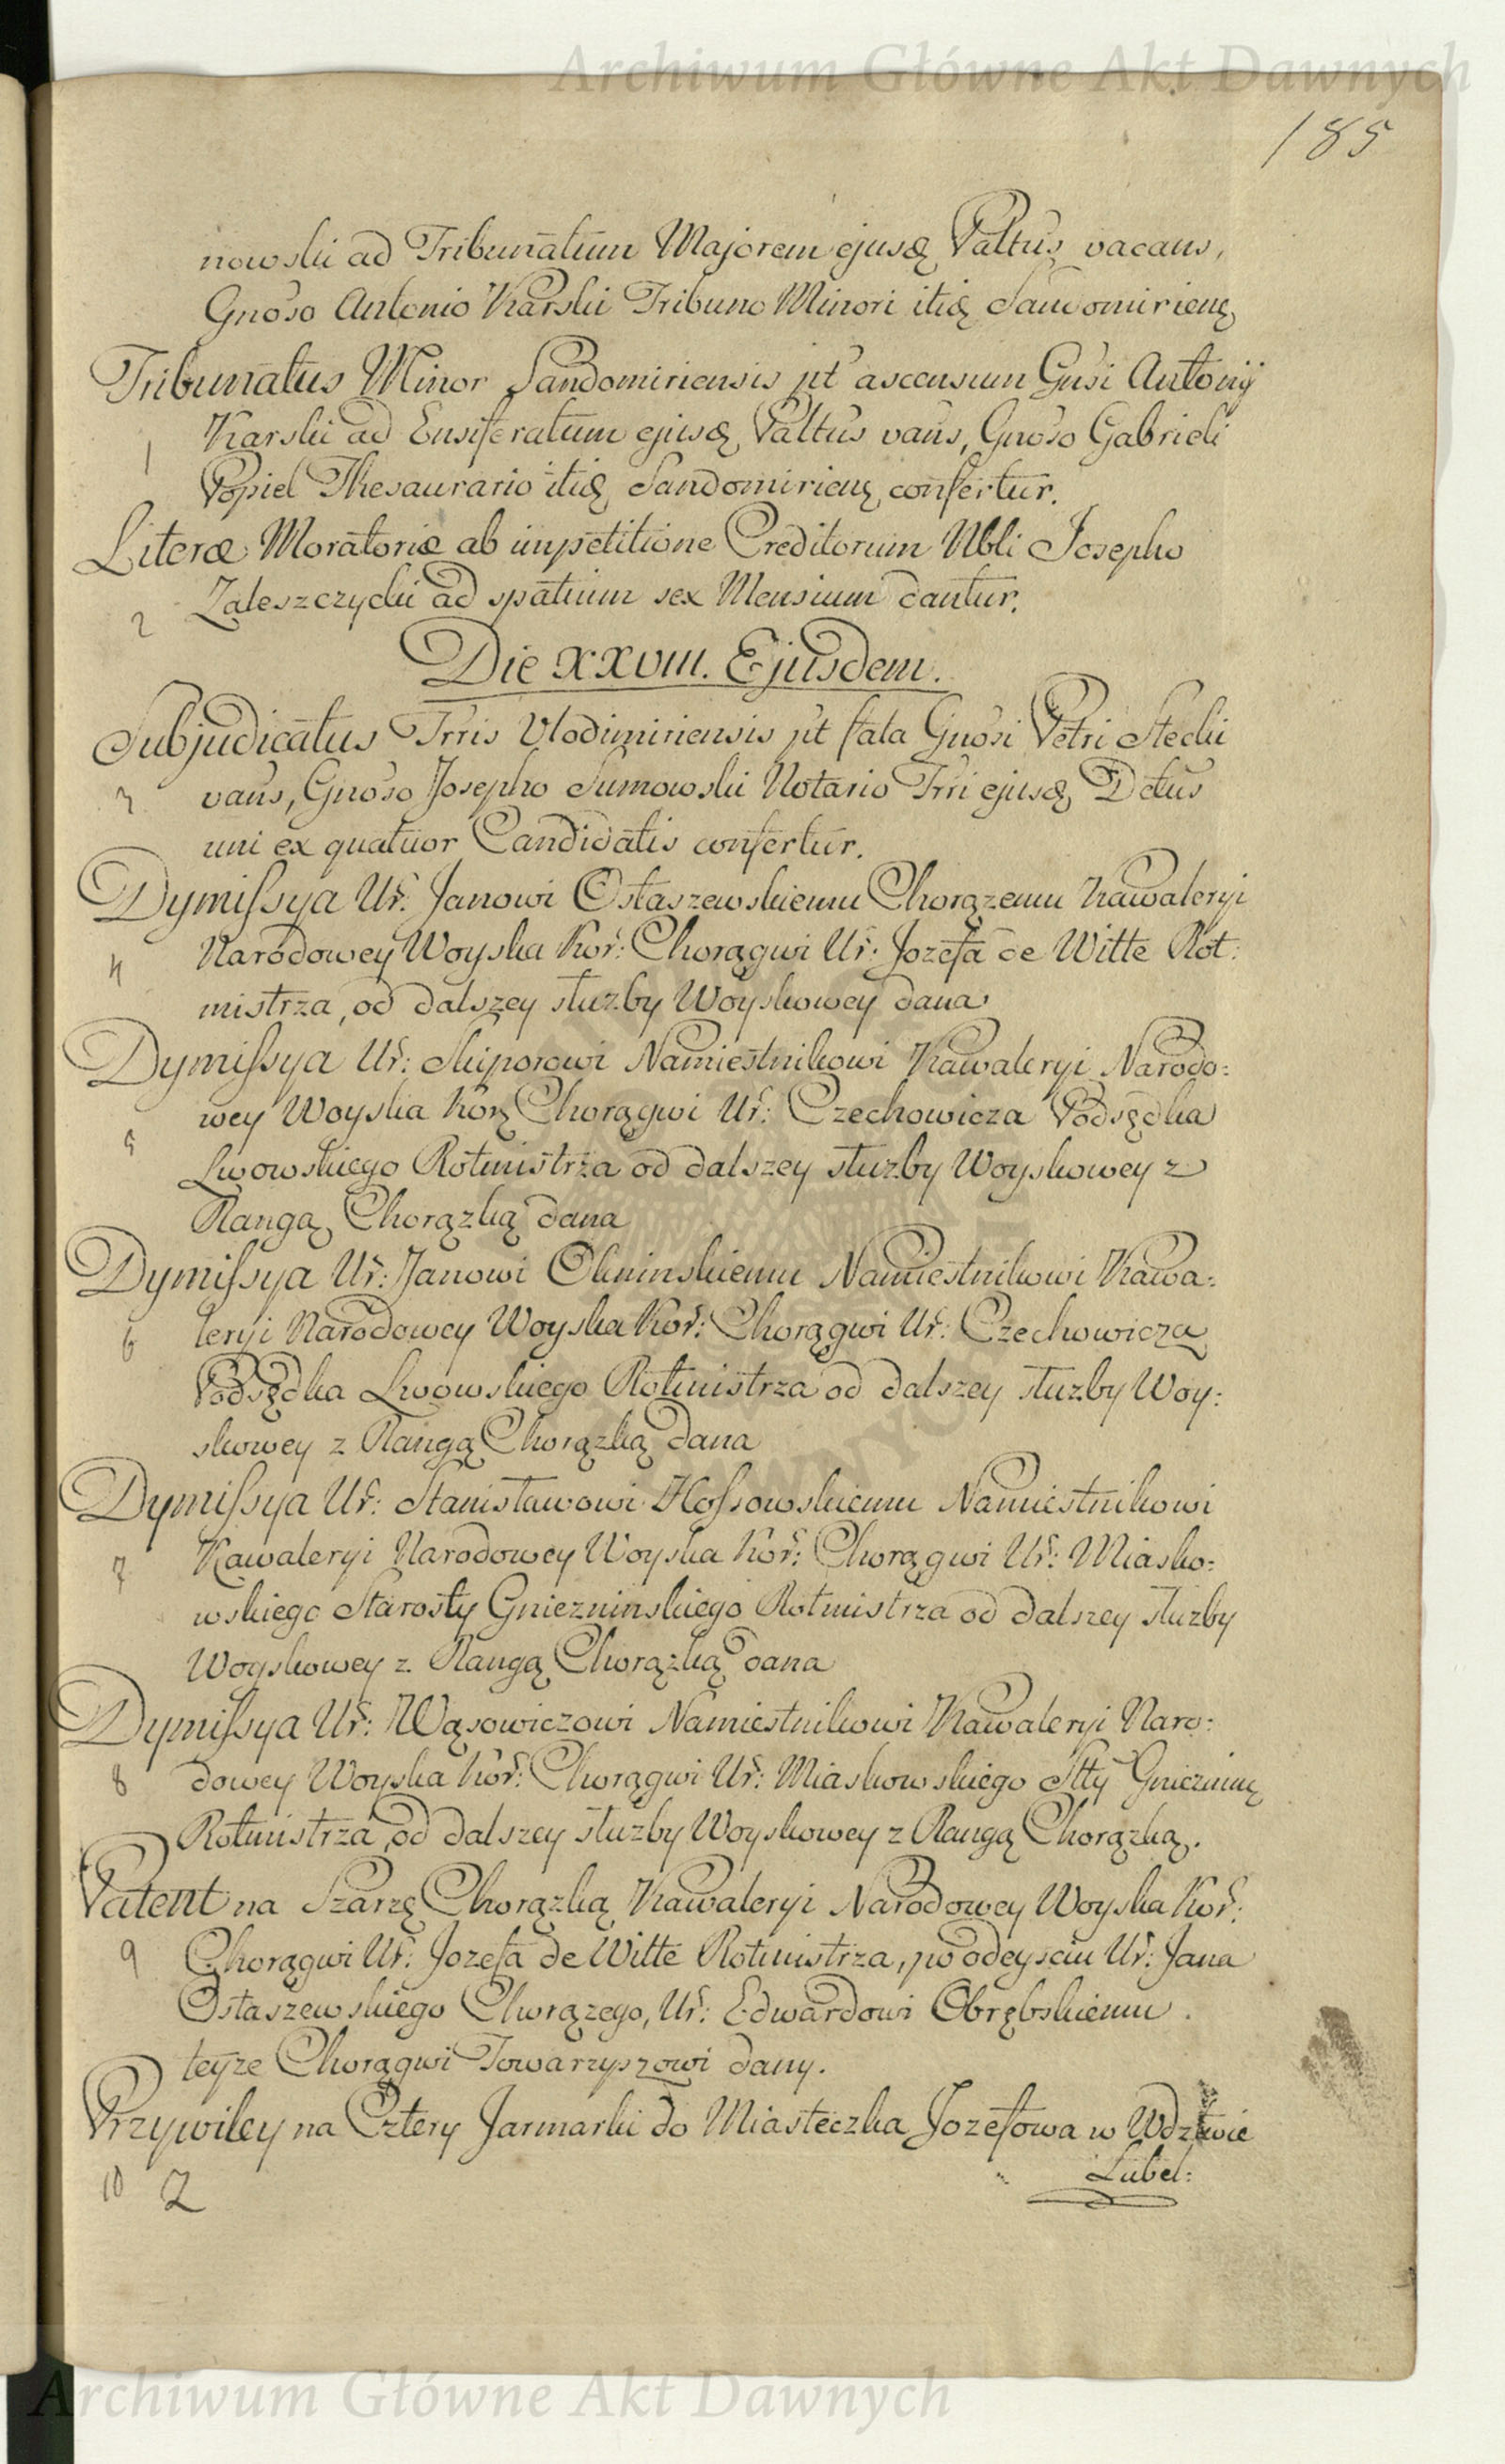 Archiwum Główne Akt Dawnych
185
nowski ad Tribunatum Majorem ejusq Palttus vacans,
Gnoso Antonio Karski Tribuno Minori itiq Sandomirienq
Tribunatus Minor Sandomiriensis pt ascensum Gnsi Antonij
Karski ad Ensiferatum ejusq Palttus vans, Gnoso Gabrieli
1
Popiel Thesaurario itiq Sandomirienq confertur.
Literæ Moratoriæ ab impetitione Creditorum Nbli Josepho
Zaleszczycki ad spatium sex Mensium dantur.
2
Die XXVIII. Ejusdem.
Subjudicatus Trris Vlodimiriensis pt fata Gnosi Petri Stecki
3 vans, Gnoso Josepho Sumowski Notario Trri ejusq Dctus
uni ex quatuor Candidatis confertur.
Dymissya Ur: Janowi Ostaszewskiemu Chorązemu Kawaleryi
4 Narodowey Woyska Kor: Chorągwi Ur: Jozefa de Witte Rot:
mistrza, od dalszey służby Woyskowey dana
Dymissya Ur: Skiporowi Namiestnikowi Kawaleryi Narodo:
wey Woyska Korq Chorągwi Ur: Czechowicza Podsędka
5
Lwowskiego Rotmistrza od dalszey służby Woyskowey z
Rangą Chorązką dana
Dymissya Ur: Janowi Okninskiemu Namiestnikowi Kawa:
6 leryi Narodowey Woyska Kor: Chorągwi Ur: Czechowicza
Podsędka Lwowskiego Rotmistrza od dalszey służby Woy:
skowey z Rangą Chorązką dana
Dymissya Ur: Stanisławowi Kossowskiemu Namiestnikowi
7 Kawaleryi Narodowey Woyska Kor: Chorągwi Ur: Miasko:
wskiego Starosty Gniezninskiego Rotmistrza od dalszey służby
Woyskowey z Rangą Chorązką dana
Dymissya Ur: Wąsowiczowi Namiestnikowi Kawaleryi Naro:
8 dowey Woyska Kor: Chorągwi Ur: Miaskowskiego Stty Gniezninq
Rotmistrza, od dalszey służby Woyskowey z Rangą Chorązką.
Patent na Szarzę Chorązką Kawaleryi Narodowey Woyska Kor:
9 Chorągwi Ur: Jozefa de Witte Rotmistrza, po odeysciu Ur: Jana
Ostaszewskiego Chorązego, Ur: Edwardowi Obrębskiemu
teyze Chorągwi Towarzyszowi dany.
Przywiley na Cztery Jarmarki do Miasteczka Jozefowa w Wdztwie
10 Z Lubel:
Archiwum Główne Akt Dawnych